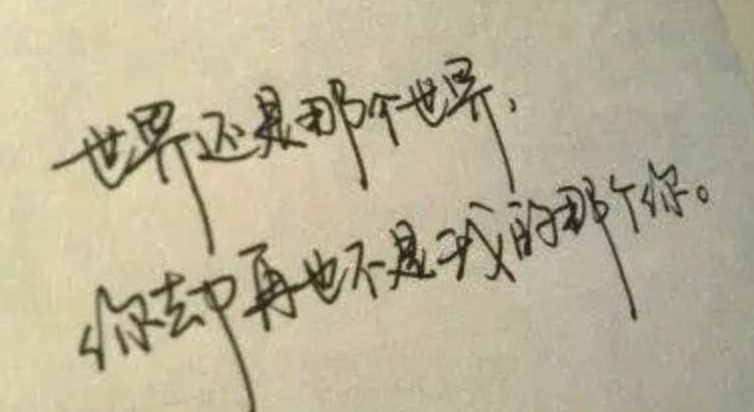 世界还是那个世界，
你却再也不是我的那个你。